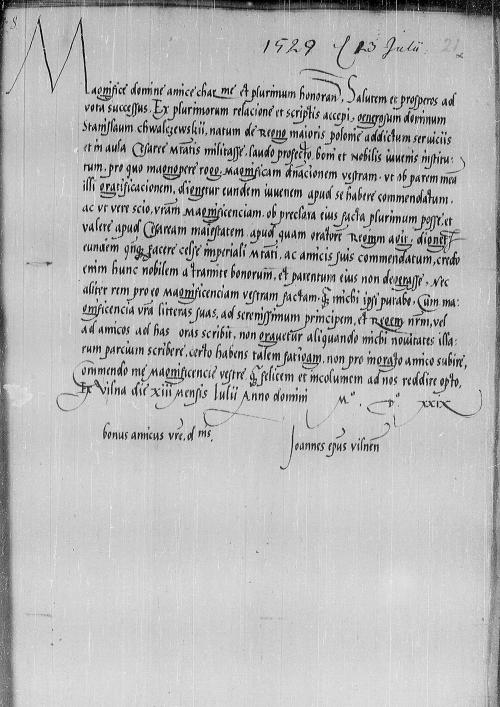 1529 13 Julii 21
Magnifice domine amice char me et plurimum honoran. Salutem et prosperos ad
vota successus. Ex plurimorum relacione et scriptis accepi, generosum dominum
Stanislaum chwalczewskii, natum de Regno maioris polonie addictum serviciis
et in aula Cesaree Mtatis militasse. laudo profecto, boni et nobilis iuvenis institu:
tum. pro quo magnopere rogo, magnificam dnacionem vestram. ut ob parem mea
illi gratificacionem, dignetur eundem iuvenem apud se habere commendatum.
ac ut vere scio, vram magnificenciam. ob preclara eius facta plurimum posse, et
valere apud Cesaream maiestatem. apud quam oratore Regium agit, dignet
eundem facere celse imperiali Mtati, ac amicis suis commendatum, credo
enim hunc nobilem a tramite bonorum, et parentum eius non degerasse. Nec
aliter rem pro eo magnificenciam vestram factam. michi ipsi putabo. Cum ma:
gnificencia vra litteras suas, ad serenissimum principem, et Regem nrm, vel
ad amicos ad has oras scribit, non gravetur aliquando michi novitates illa:
rum parcium scribere, certo habens talem fatigam, non pro ingrato amico subire,
Commendo me magnificencie vestre, felicem et incolumem ad nos reddire opto,
Ex Vilna die XIII mensis Iulii Anno domini Mo. Do. XXIX
bonus amicus vre. d ms.
Joannes epus vilnen